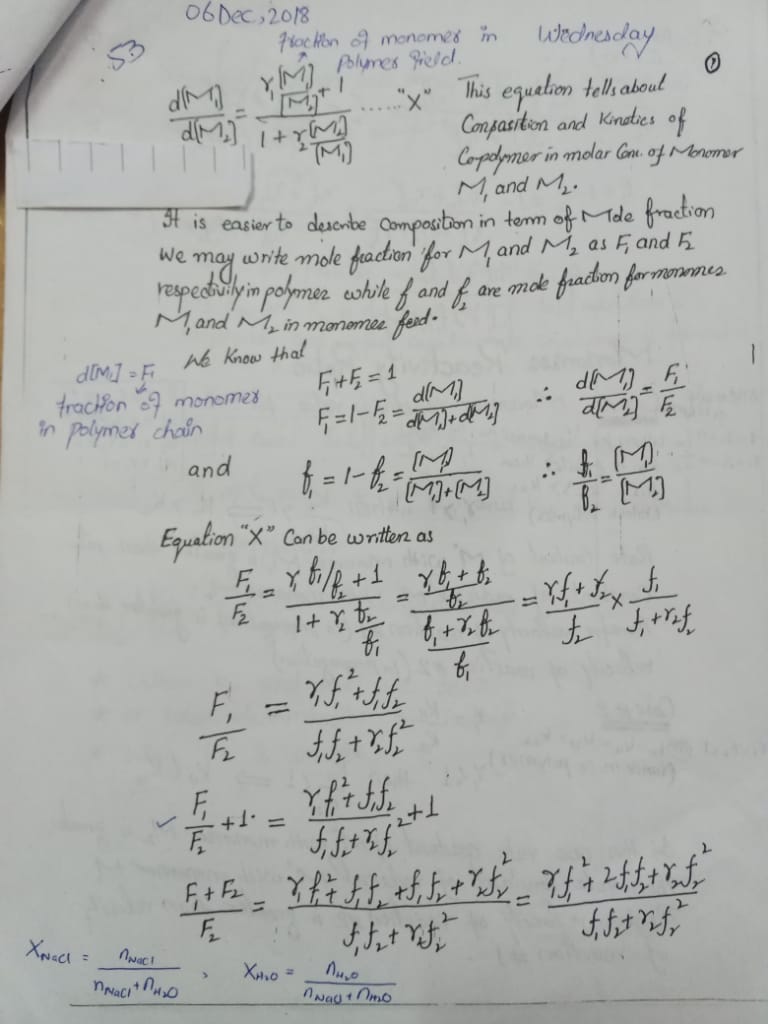 06 Dec, 2018
fraction of monomer in Wednesday
53 polymer yield. 1
d[M₁]/d[M₂] = (r₁[M₁]/[M₂] + 1)/(1 + r₂[M₂]/[M₁]) ...... "X" This equation tells about
Composition and Kinetics of
Copolymer in molar Conc. of Monomer
M₁ and M₂.
It is easier to describe Composition in term of Mole fraction
We may write mole fraction for M₁ and M₂ as F₁ and F₂
respectivily in polymer while f and f₂ are mole fraction for monomer
M₁ and M₂ in monomer feed.
We Know that
d[M₁] = F₁
fraction of monomer
in polymer chain
F₁ + F₂ = 1
F₁ = 1 - F₂ = d[M₁]/(d[M₁] + d[M₂]) ∴ d[M₁]/d[M₂] = F₁/F₂
and f₁ = 1 - f₂ = [M₁]/([M₁] + [M₂]) ∴ f₁/f₂ = [M₁]/[M₂]
Equation "X" Can be written as
F₁/F₂ = (r₁ f₁/f₂ + 1)/(1 + r₂ f₂/f₁) = ((r₁f₁ + f₂)/f₂)/((f₁ + r₂f₂)/f₁) = (r₁f₁ + f₂)/f₂ × f₁/(f₁ + r₂f₂)
F₁/F₂ = (r₁f₁² + f₁f₂)/(f₁f₂ + r₂f₂²)
✓ F₁/F₂ + 1 = (r₁f₁² + f₁f₂)/(f₁f₂ + r₂f₂²) + 1
(F₁ + F₂)/F₂ = (r₁f₁² + f₁f₂ + f₁f₂ + r₂f₂²)/(f₁f₂ + r₂f₂²) = (r₁f₁² + 2f₁f₂ + r₂f₂²)/(f₁f₂ + r₂f₂²)
X_NaCl = n_NaCl/(n_NaCl + n_H₂O) , X_H₂O = n_H₂O/(n_NaCl + n_H₂O)